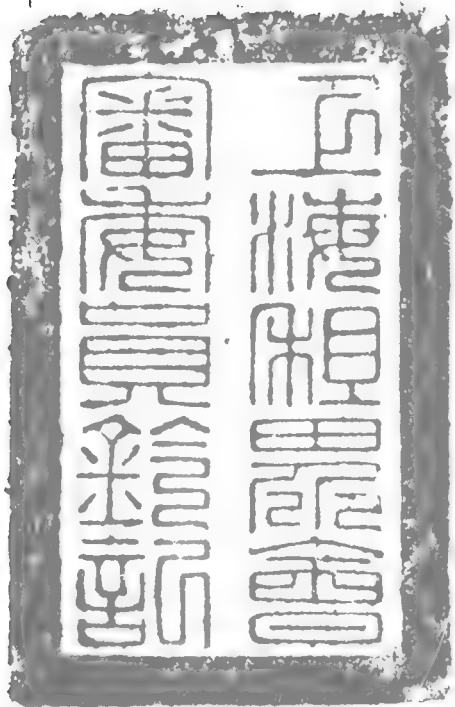 上海租界會
審委員鈐記